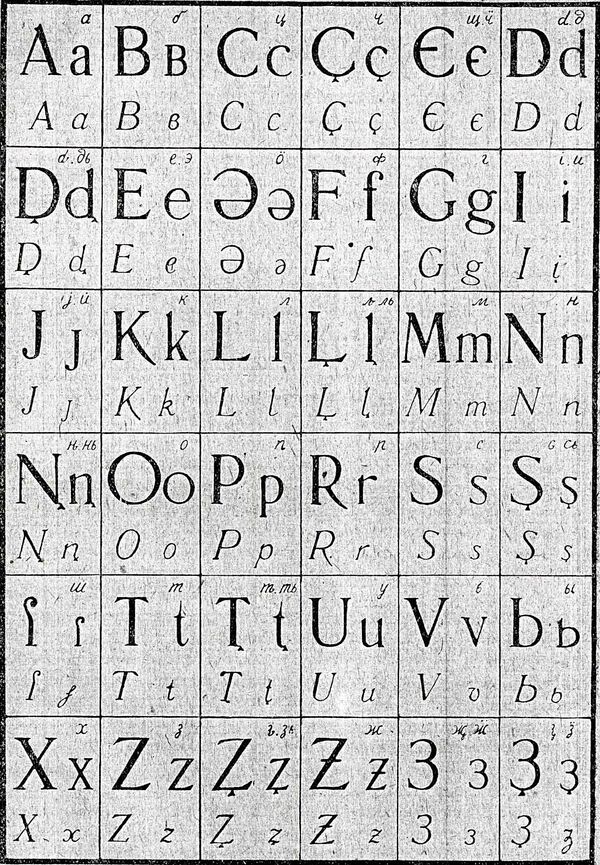 а б ц ч щ.ӵ d.д
Aa Bʙ Cc Çç Єє Dd
Aa Bʙ Cc Çç Єє Dd
ԃ.дь е.э ӧ ф г і.и
D̡d̡ Ee Əə Ff Gg Ii
D̡d̡ Ee Əə Ff Gg Ii
ј.й к л љ.ль м н
Jj Kk Ll Ļļ Mm Nn
Jj Kk Ll Ļļ Mm Nn
њ.нь о п р с ԍ сь
Ņņ Oo Pp Rr Ss Şş
Ņņ Oo Pp Rr Ss Şş
ш т ть у в ы
ʃʃ Tt Ţţ Uu Vv Ьь
ʃʃ Tt Ţţ Uu Vv Ьь
х з зь ж җ ӝ ӟ
Xx Zz Z̦z̦ Ƶƶ Зз З̧з̧
Xx Zz Z̦z̦ Ƶƶ Зз З̧з̧